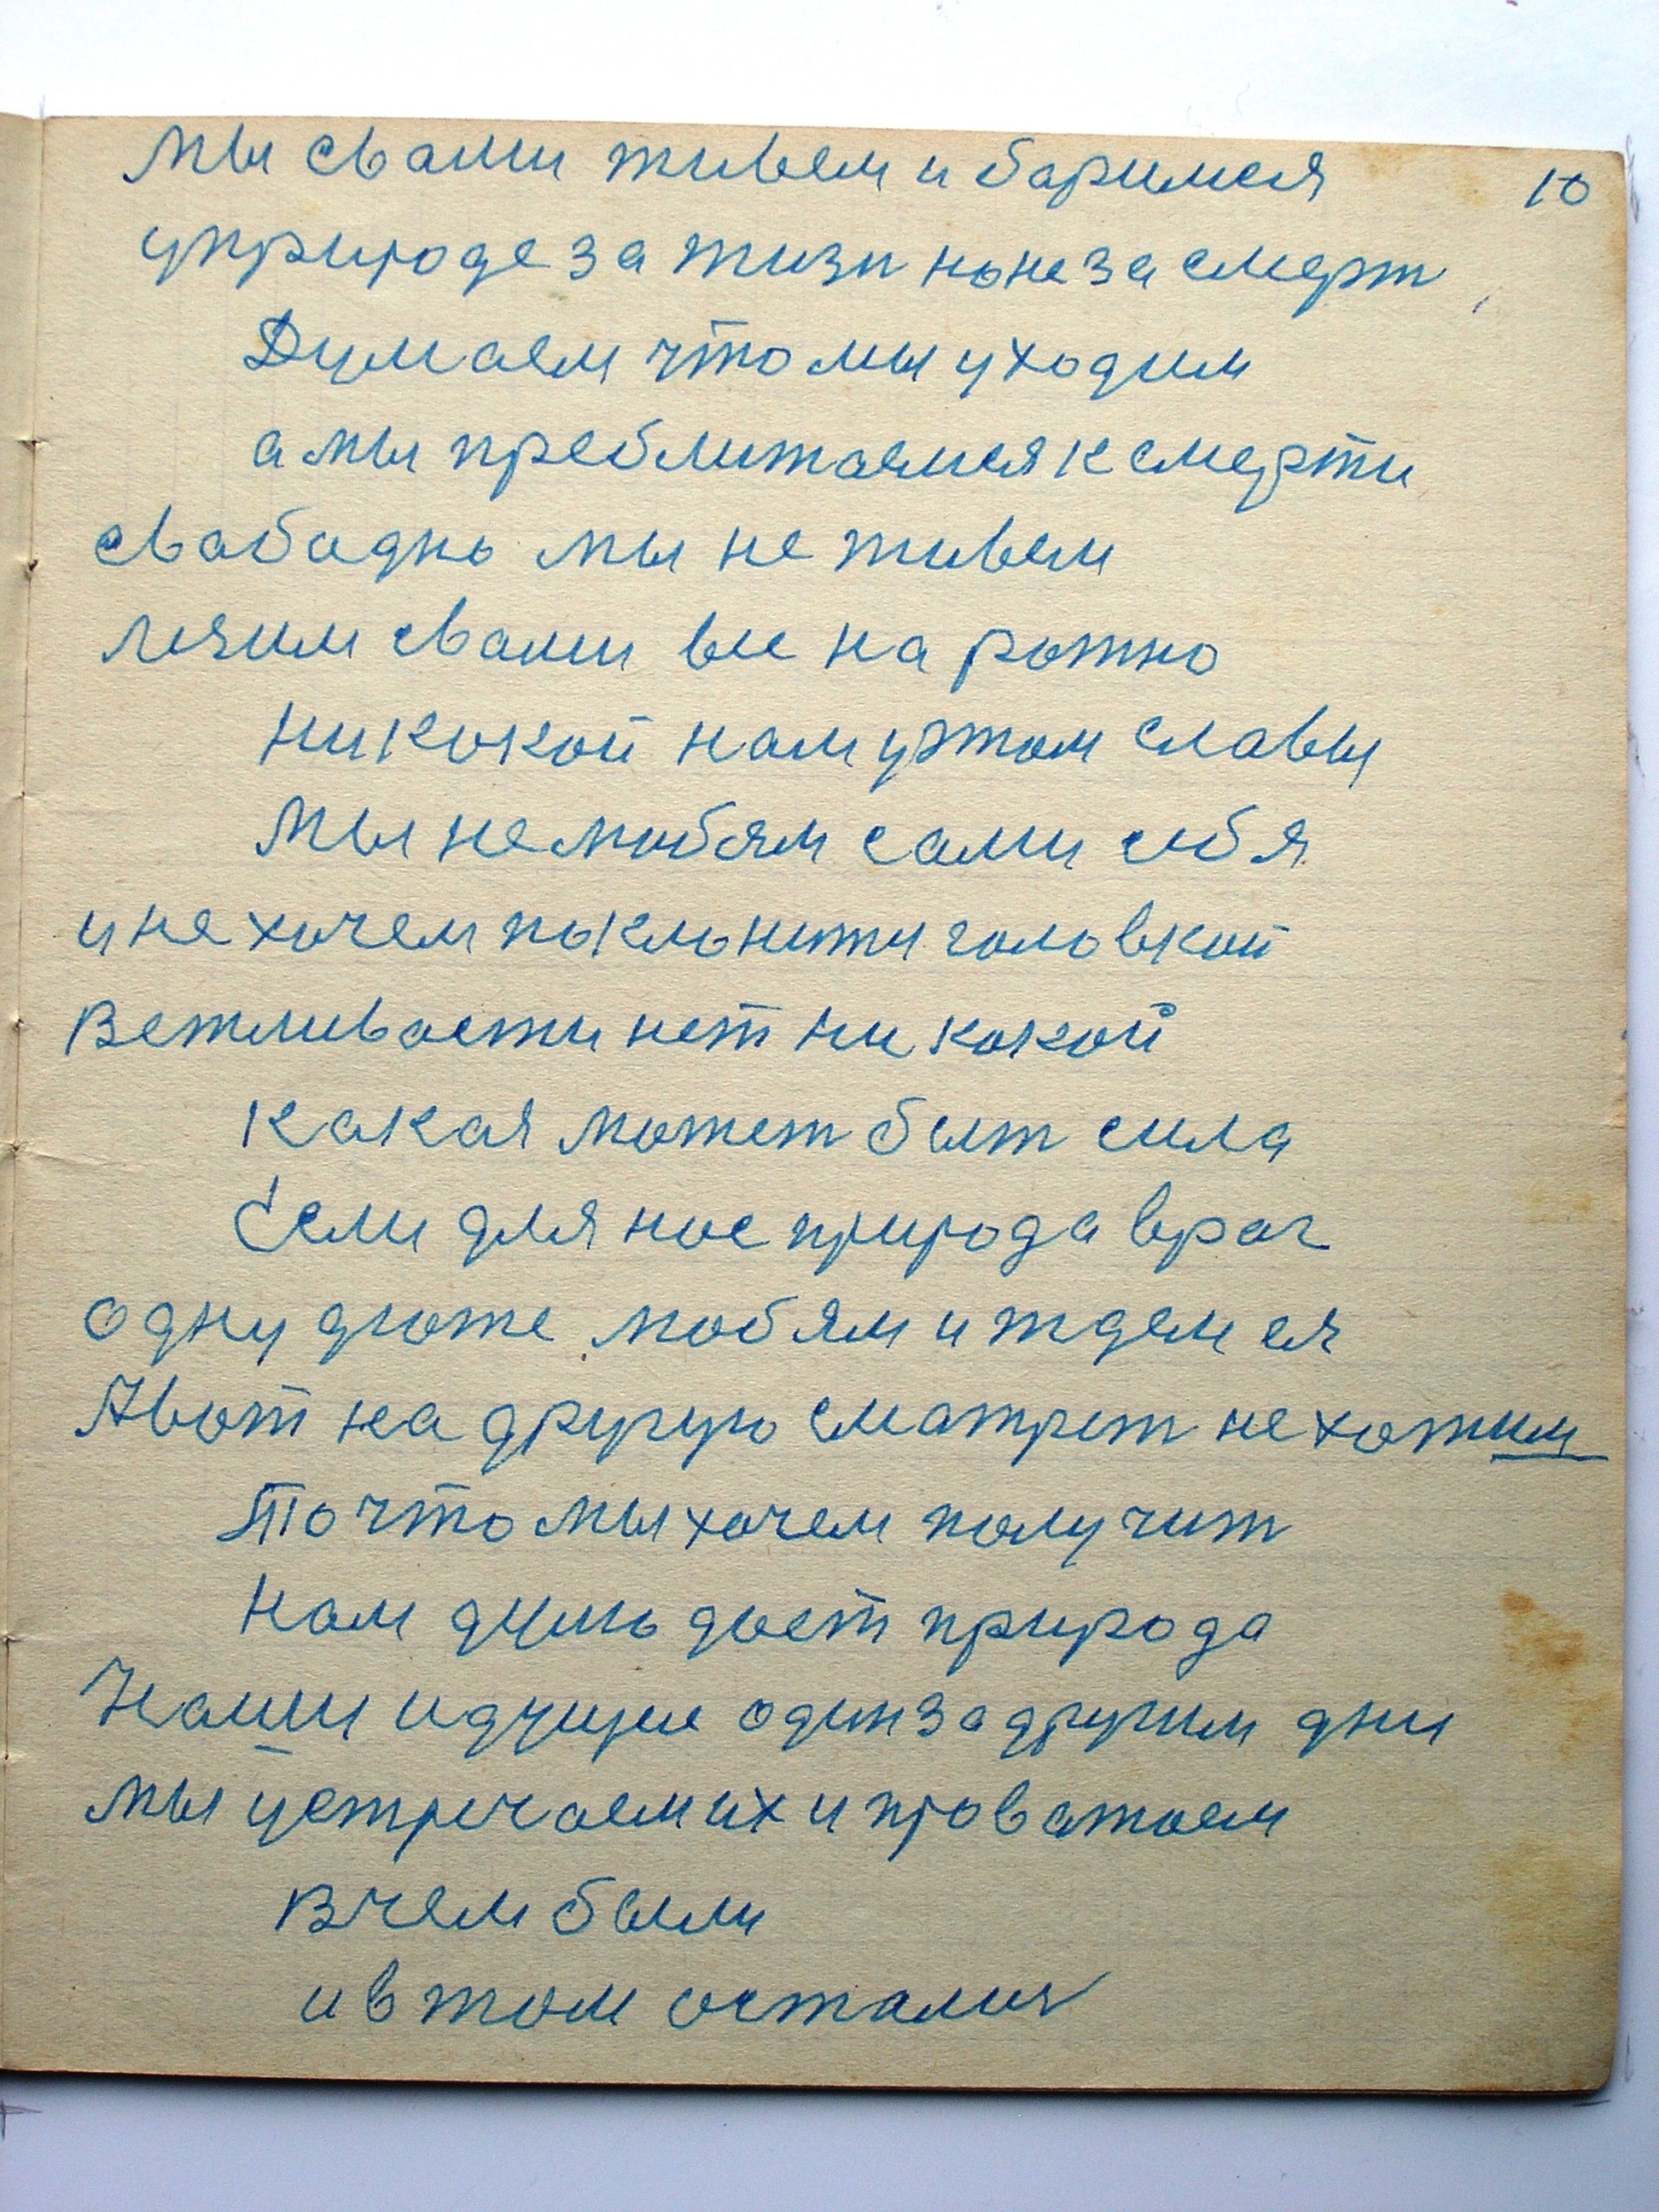 мы свами живем и баримся
10
уприроде за жизн ноне за смерт
Думаем что мы уходим
а мы преближаемся к смерти
свабадно мы не живем
лечим свами вы на
никокой нам утом славы
Мы нелюбям сами себя
и не хочем поклонити головкой
Вежливасти нет ни какой
Какая может быт сила
Если для нас природа враг
одну дюже любям и ждем ея
Авот на другую сматрет не хотим
То что мы хочем получит
нам думь дает природа
Наши идущие один за другим дни
мы устречаем их и проважаем
В чем были
и в том осталися